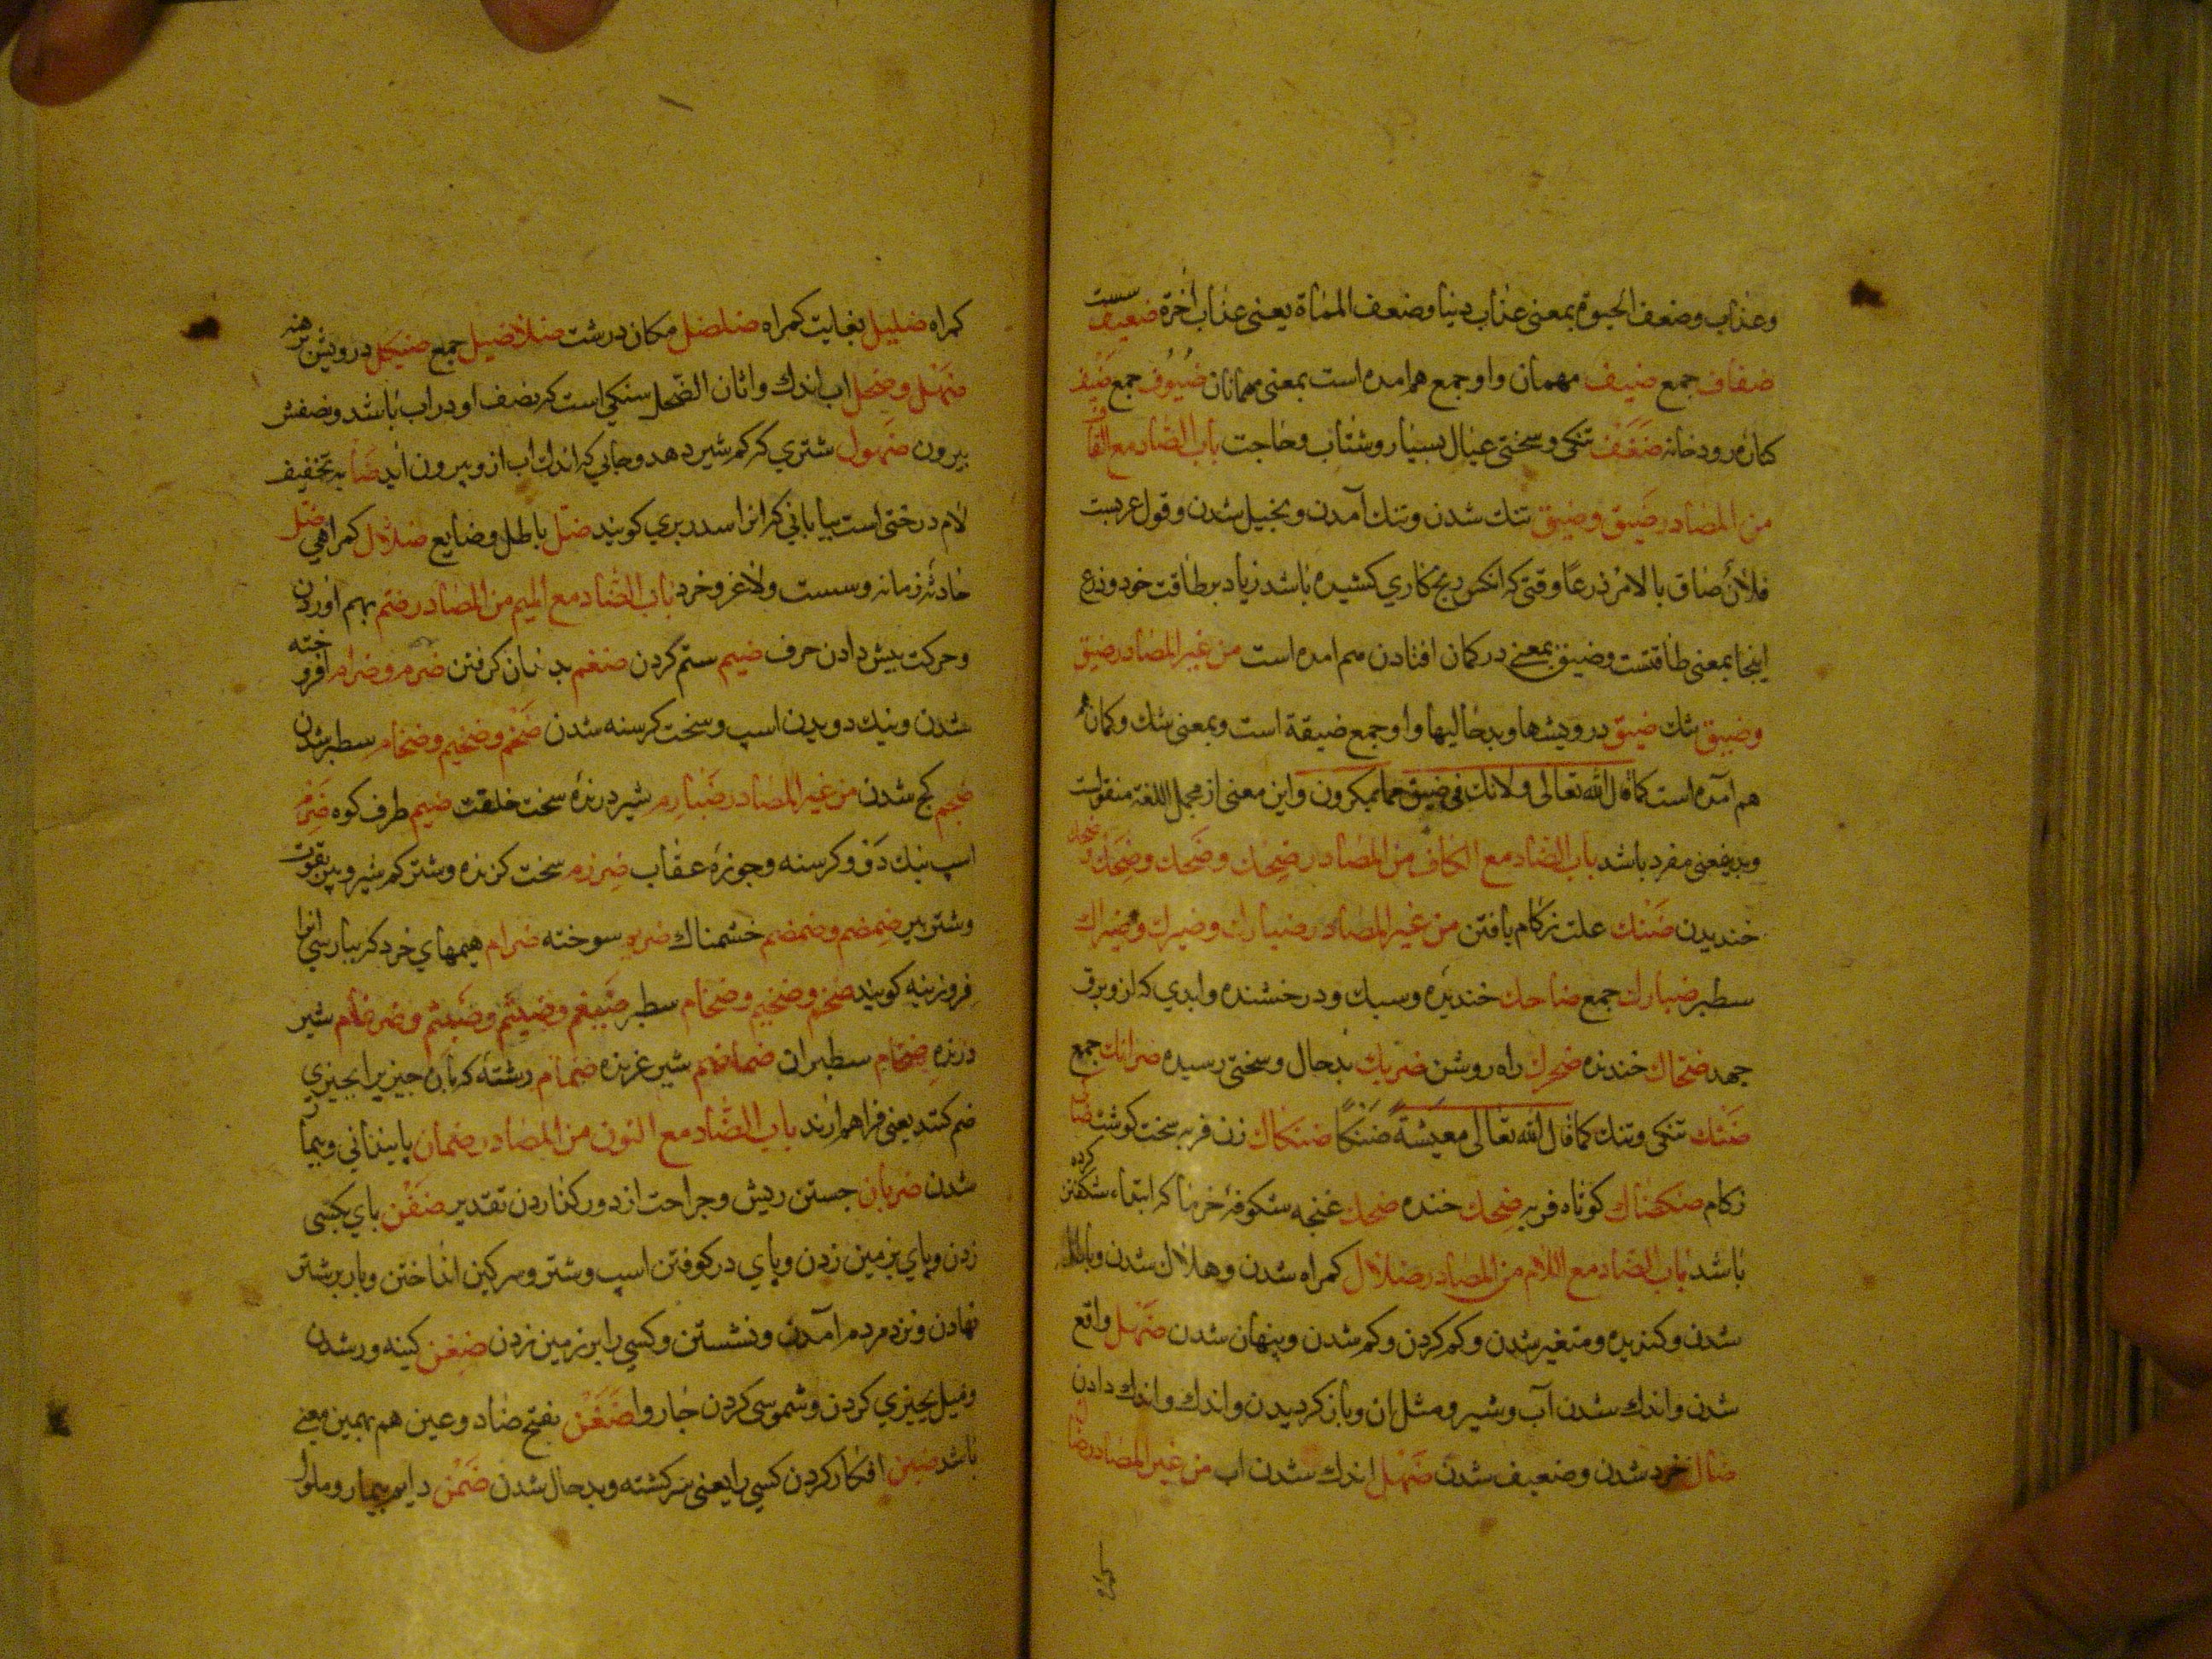 وعذاب وضعف الحیوة بمعنی عذاب دنیا وضعف المماة یعنی عذاب اخرة ضعیف سست
ضفاف جمع ضیف مهمان واو جمع هم امده است بمعنی مهمانان ضُیُوف جمع ضَیْف
کناره رودخانه ضَفَف تنکی و سختی عیال بسیار وشتاب وحاجت باب الضاد مع القاف
من المصادر ضَیق وضیق تنك شدن وتنك آمدن وبخیل شدن وقول عربست
فلان ضاق بالامر ذرعًا وقتی که انکس رنج کاری کشیده باشد زیاد بر طاقت خود وذرع
اینجا بمعنی طاقتست وضیق بمعنی در کمان افتادن هم امده است من غیر المصادر ضیق
وضیق شك ضیق درویشها وبدحالیها واو جمع ضیقة است وبمعنی شك وکمان
هم آمده است کما قال الله تعالی ولا تك فی ضیق مما یمکرون واین معنی از مجمل اللغة منقولست
وبدینمعنی مفرد باشد باب الضاد مع الکاف من المصادر ضِحْك وضَحْك وضَحِك
خندیدن ضَنْك علت زکام یافتن من غیر المصادر ضبارك وضبرك وضبراك
سطبر ضبارك جمع ضاحك خندنده وسبك ودرخشنده وابری که ازو برق
جهد ضحّاك خندنده ضحوك راه روشن ضریك بدحال وسختی رسیده ضرائك جمع
ضَنْك تنکی وتنك کما قال الله تعالی معیشة ضنکًا ضنکاك زن فربه سخت کوشت
زکام ضکضاك کوتاه فربه ضحك خنده ضحك غنچه شکوفهٔ خرما که ابتداء شکفتن کرده
باشد باب الضاد مع اللام من المصادر ضلال کمراه شدن وهلاك شدن وباطل
شدن وکندیده ومتغیر شدن وکم کردن وکم شدن وپنهان شدن ضَهْل واقع
شدن واندك شدن آب وشیر ومثل ان وباز کردیدن واندك واندك دادن
ضأل خرد شدن وضعیف شدن ضَهْل اندك شدن اب من غیر المصادر ضال
کمراه
کمراه ضلیل بغایت کمراه ضلضل مکان درشت ضلاضیل جمع ضیکل درویش برهنه
ضَهْل وضحل اب اندك واتان الضحل سنکی است که نصف او در اب باشد ونصفش
بیرون ضَهول شتری که کم شیر دهد وچاهی که اندك اب ازو بیرون اید ضال به تخفیف
لام درختی است بیابانی که انرا سدر بری کویند ضلّ باطل وضایع ضلال کمراهی ضئیل
حادثهٔ زمانه وسست ولاغر وخرد باب الضاد مع المیم من المصادر ضم بهم اوردن
وحرکت پیش دادن حرف ضیم ستم کردن ضغم بدندان کرفتن ضرم وضرام افروخته
شدن ونیك دویدن اسپ وسخت کرسنه شدن ضَخْم وضخیم وضخام سطبر شدن
ضجم کج شدن من غیر المصادر ضُبارِم شیر درنده سخت خلقت ضیم طرف کوه ضَرِم
اسپ نیك دَوْ وکرسنه وجوزهٔ عقاب ضرزم سخت کزنده وشتر کم شیر وپیر بقوت
وشتر پیر ضمضم وضمضم خشمناك ضریم سوخته ضرام هیمهای خرد که بپارسی انرا
فروزینه کویند ضخم وضخیم وضخام سطبر ضَیْغم وضیثم وضبثم وضرضام شیر
درنده ضخام سطبران ضماضم شیر غرنده ضمام رشته که بان چیزی را بچیزی
ضم کنند یعنی فراهم ارند باب الضاد مع النون من المصادر ضمان پایندانی وبیمار
شدن ضربان جستن ریش وجراحت از درد کذاردن تقدیر ضَفْن پای بکسی
زدن وپای بزمین زدن وپای درکوفتن اسپ وشتر وسرکین انداختن وبار بر شتر
نهادن ونزد مردم آمدن ونشستن وکسی را بر زمین زدن ضِغن کینه ور شدن
ومیل بچیزی کردن وشموسی کردن چاروا ضَغَن بفتح ضاد وعین هم بهمین معنی
باشد ضبن افکار کردن کسی را یعنی سرکشته وبدحال شدن ضَمْن دایم بیمار وملول